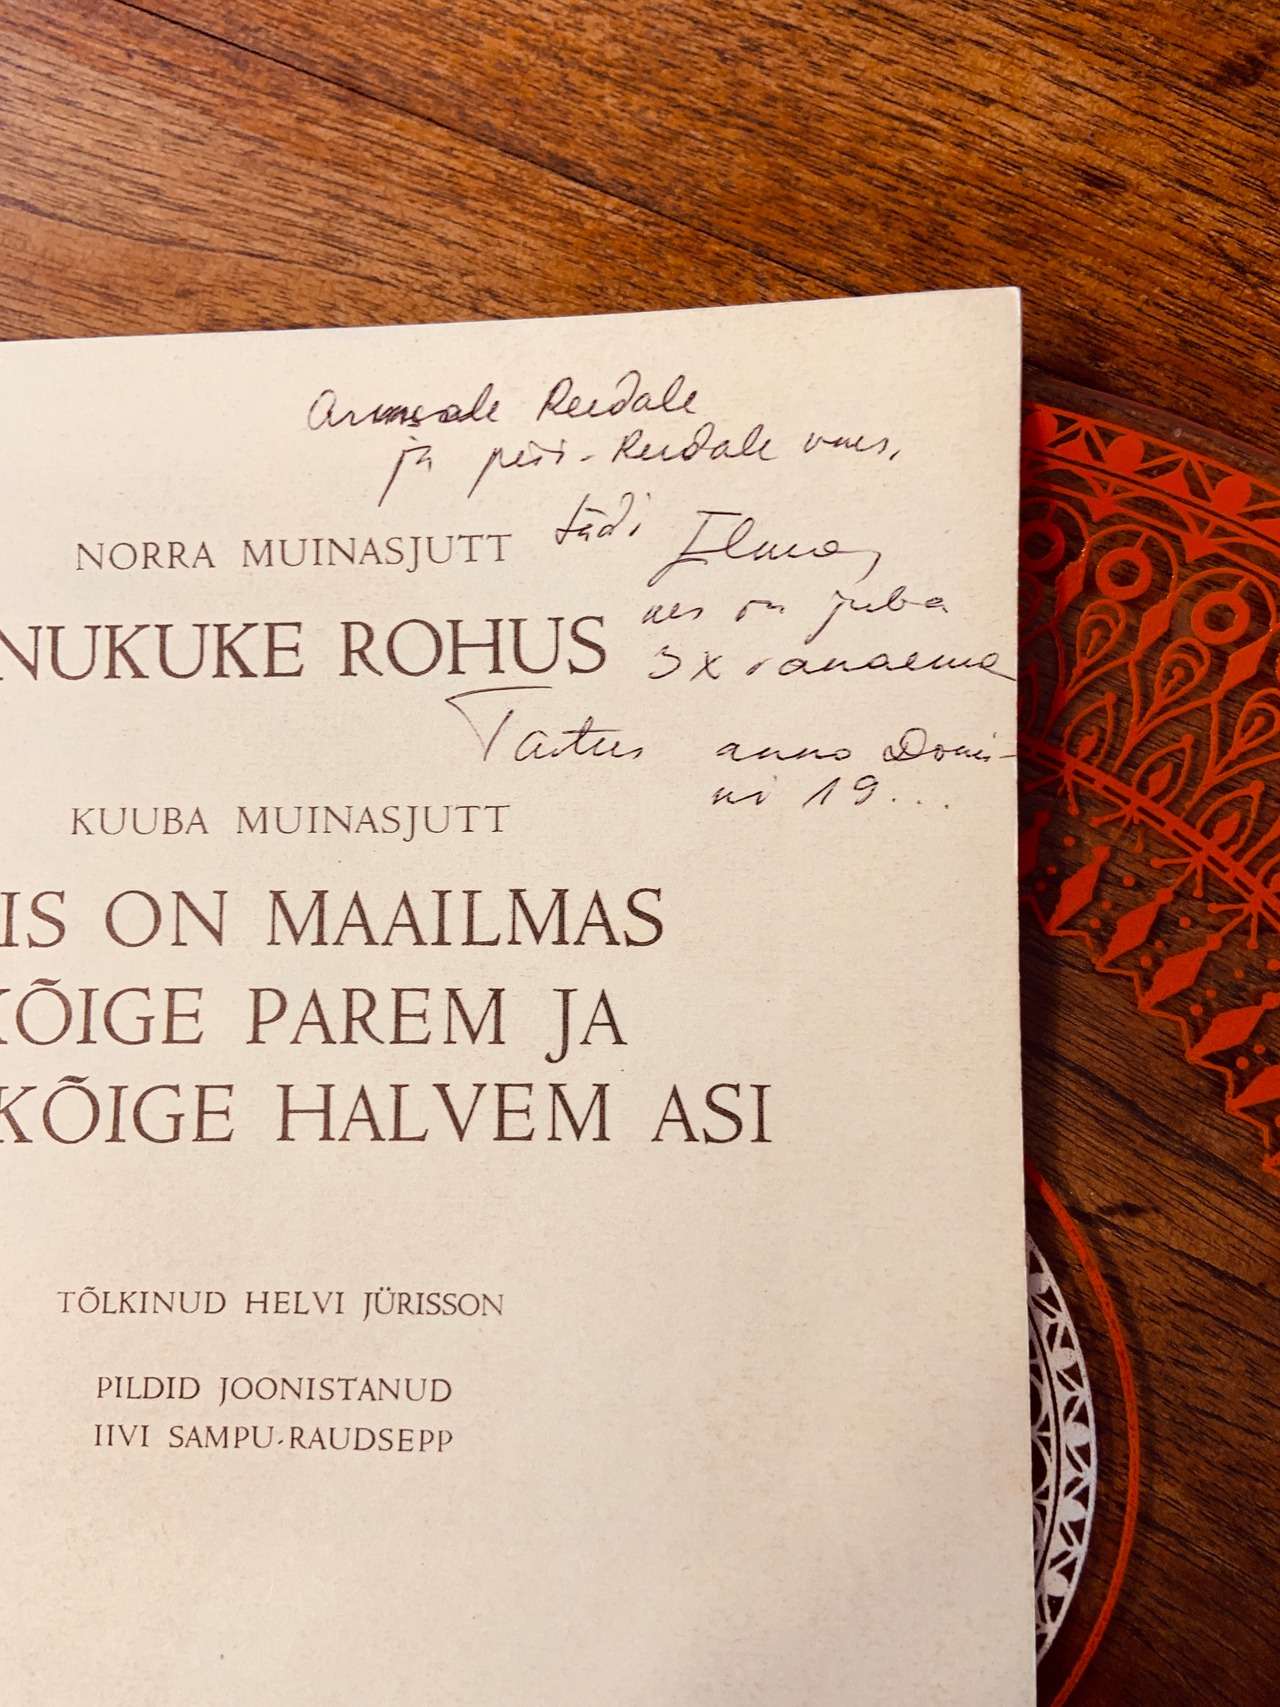 Armsale Reedale
ja pere-Reedale onus,
tädi Ilma,
kes on juba
3x vanaema
Tartus anno Domi-
ni 19...
NORRA MUINASJUTT
NUKUKE ROHUS
KUUBA MUINASJUTT
IS ON MAAILMAS
KÕIGE PAREM JA
KÕIGE HALVEM ASI
TÕLKINUD HELVI JÜRISSON
PILDID JOONISTANUD
IIVI SAMPU-RAUDSEPP